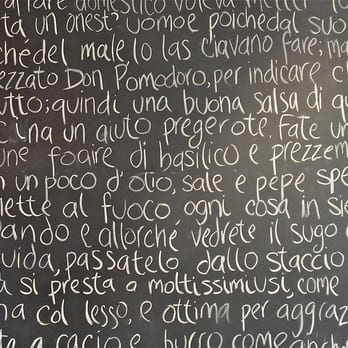 domestico
ta un onest? uomo e poiche dal suo
che del male lo las ciavano fare; ma
ezzato Don Pomodoro, per indicare c
utto; quindi una buona salsa di qu
c ina un aiuto pregerote. Fate un
une foaire di basilico e prezzem
n un poco d'olio, sale e pepe spe
lette al fuoco ogni cosa in sie
ando e allorché vedrete il sugo c
uida, passatelo dallo staccio
a si presta a moltissimi usi, come
na col lesso, e ottima per aggraz
ta a cacio e burro come anch